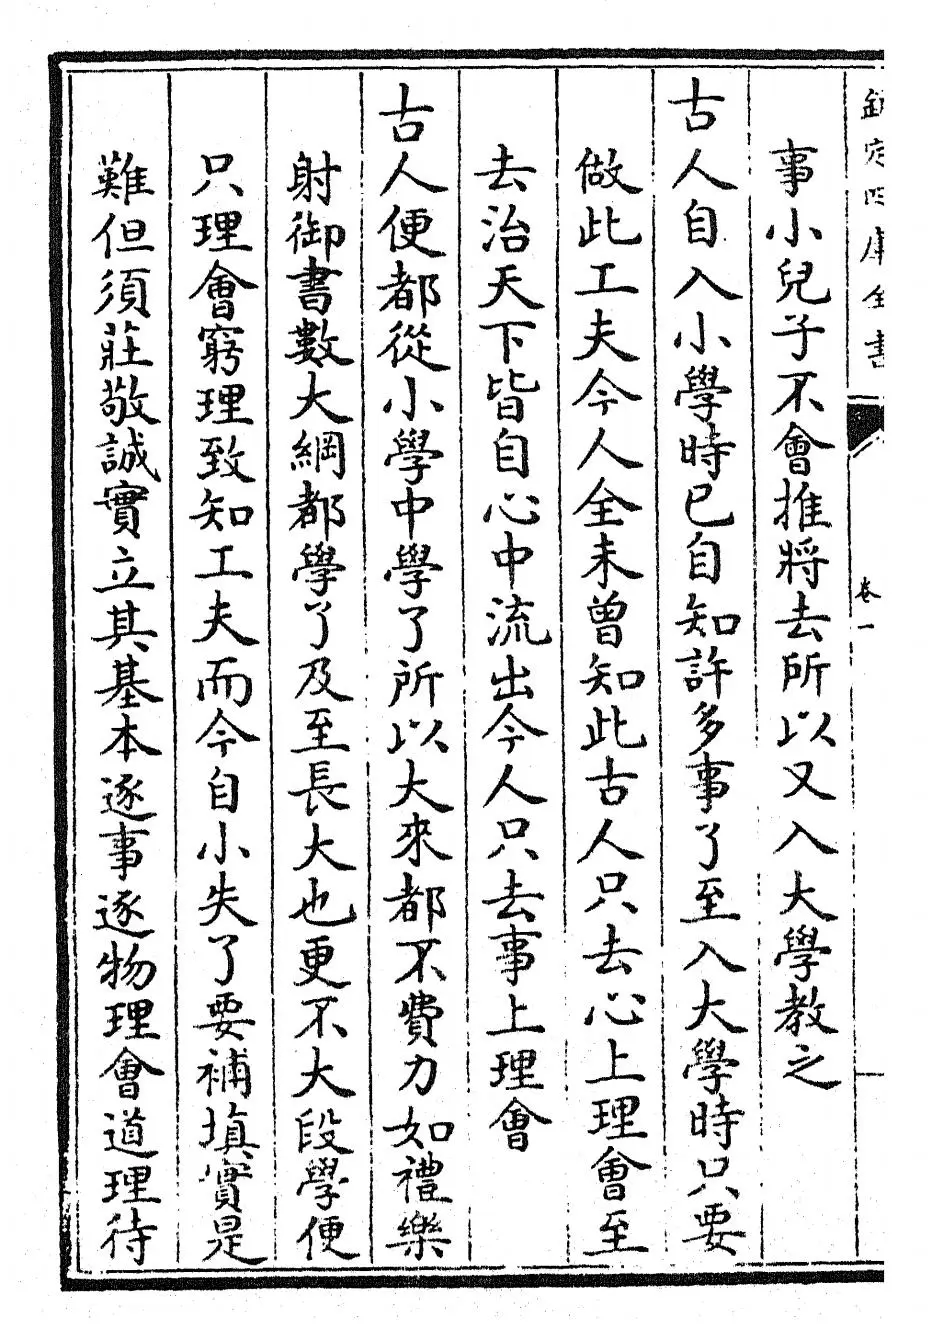 欽定四庫全書
卷一
事小兒子不會推將去所以又入大學教之
古人自入小學時已自知許多事了至入大學時只要
做此工夫今人全未曾知此古人只去心上理會至
去治天下皆自心中流出今人只去事上理會
古人便都從小學中學了所以大來都不費力如禮樂
射御書數大綱都學了及至長大也更不大段學便
只理會窮理致知工夫而今自小失了要補填實是
難但須莊敬誠實立其基本逐事逐物理會道理待